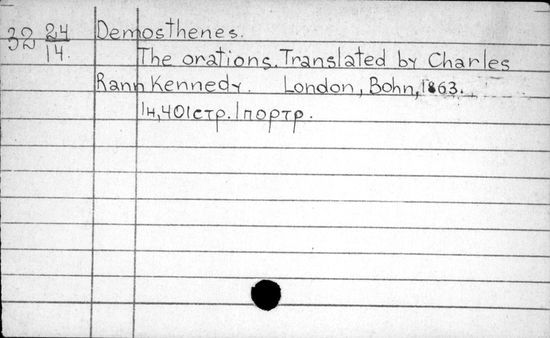 32 24/14. Demosthenes.
The orations. Translated by Charles
Rann Kennedy. London, Bohn, 1863.
1н, 401стр. 1портр.